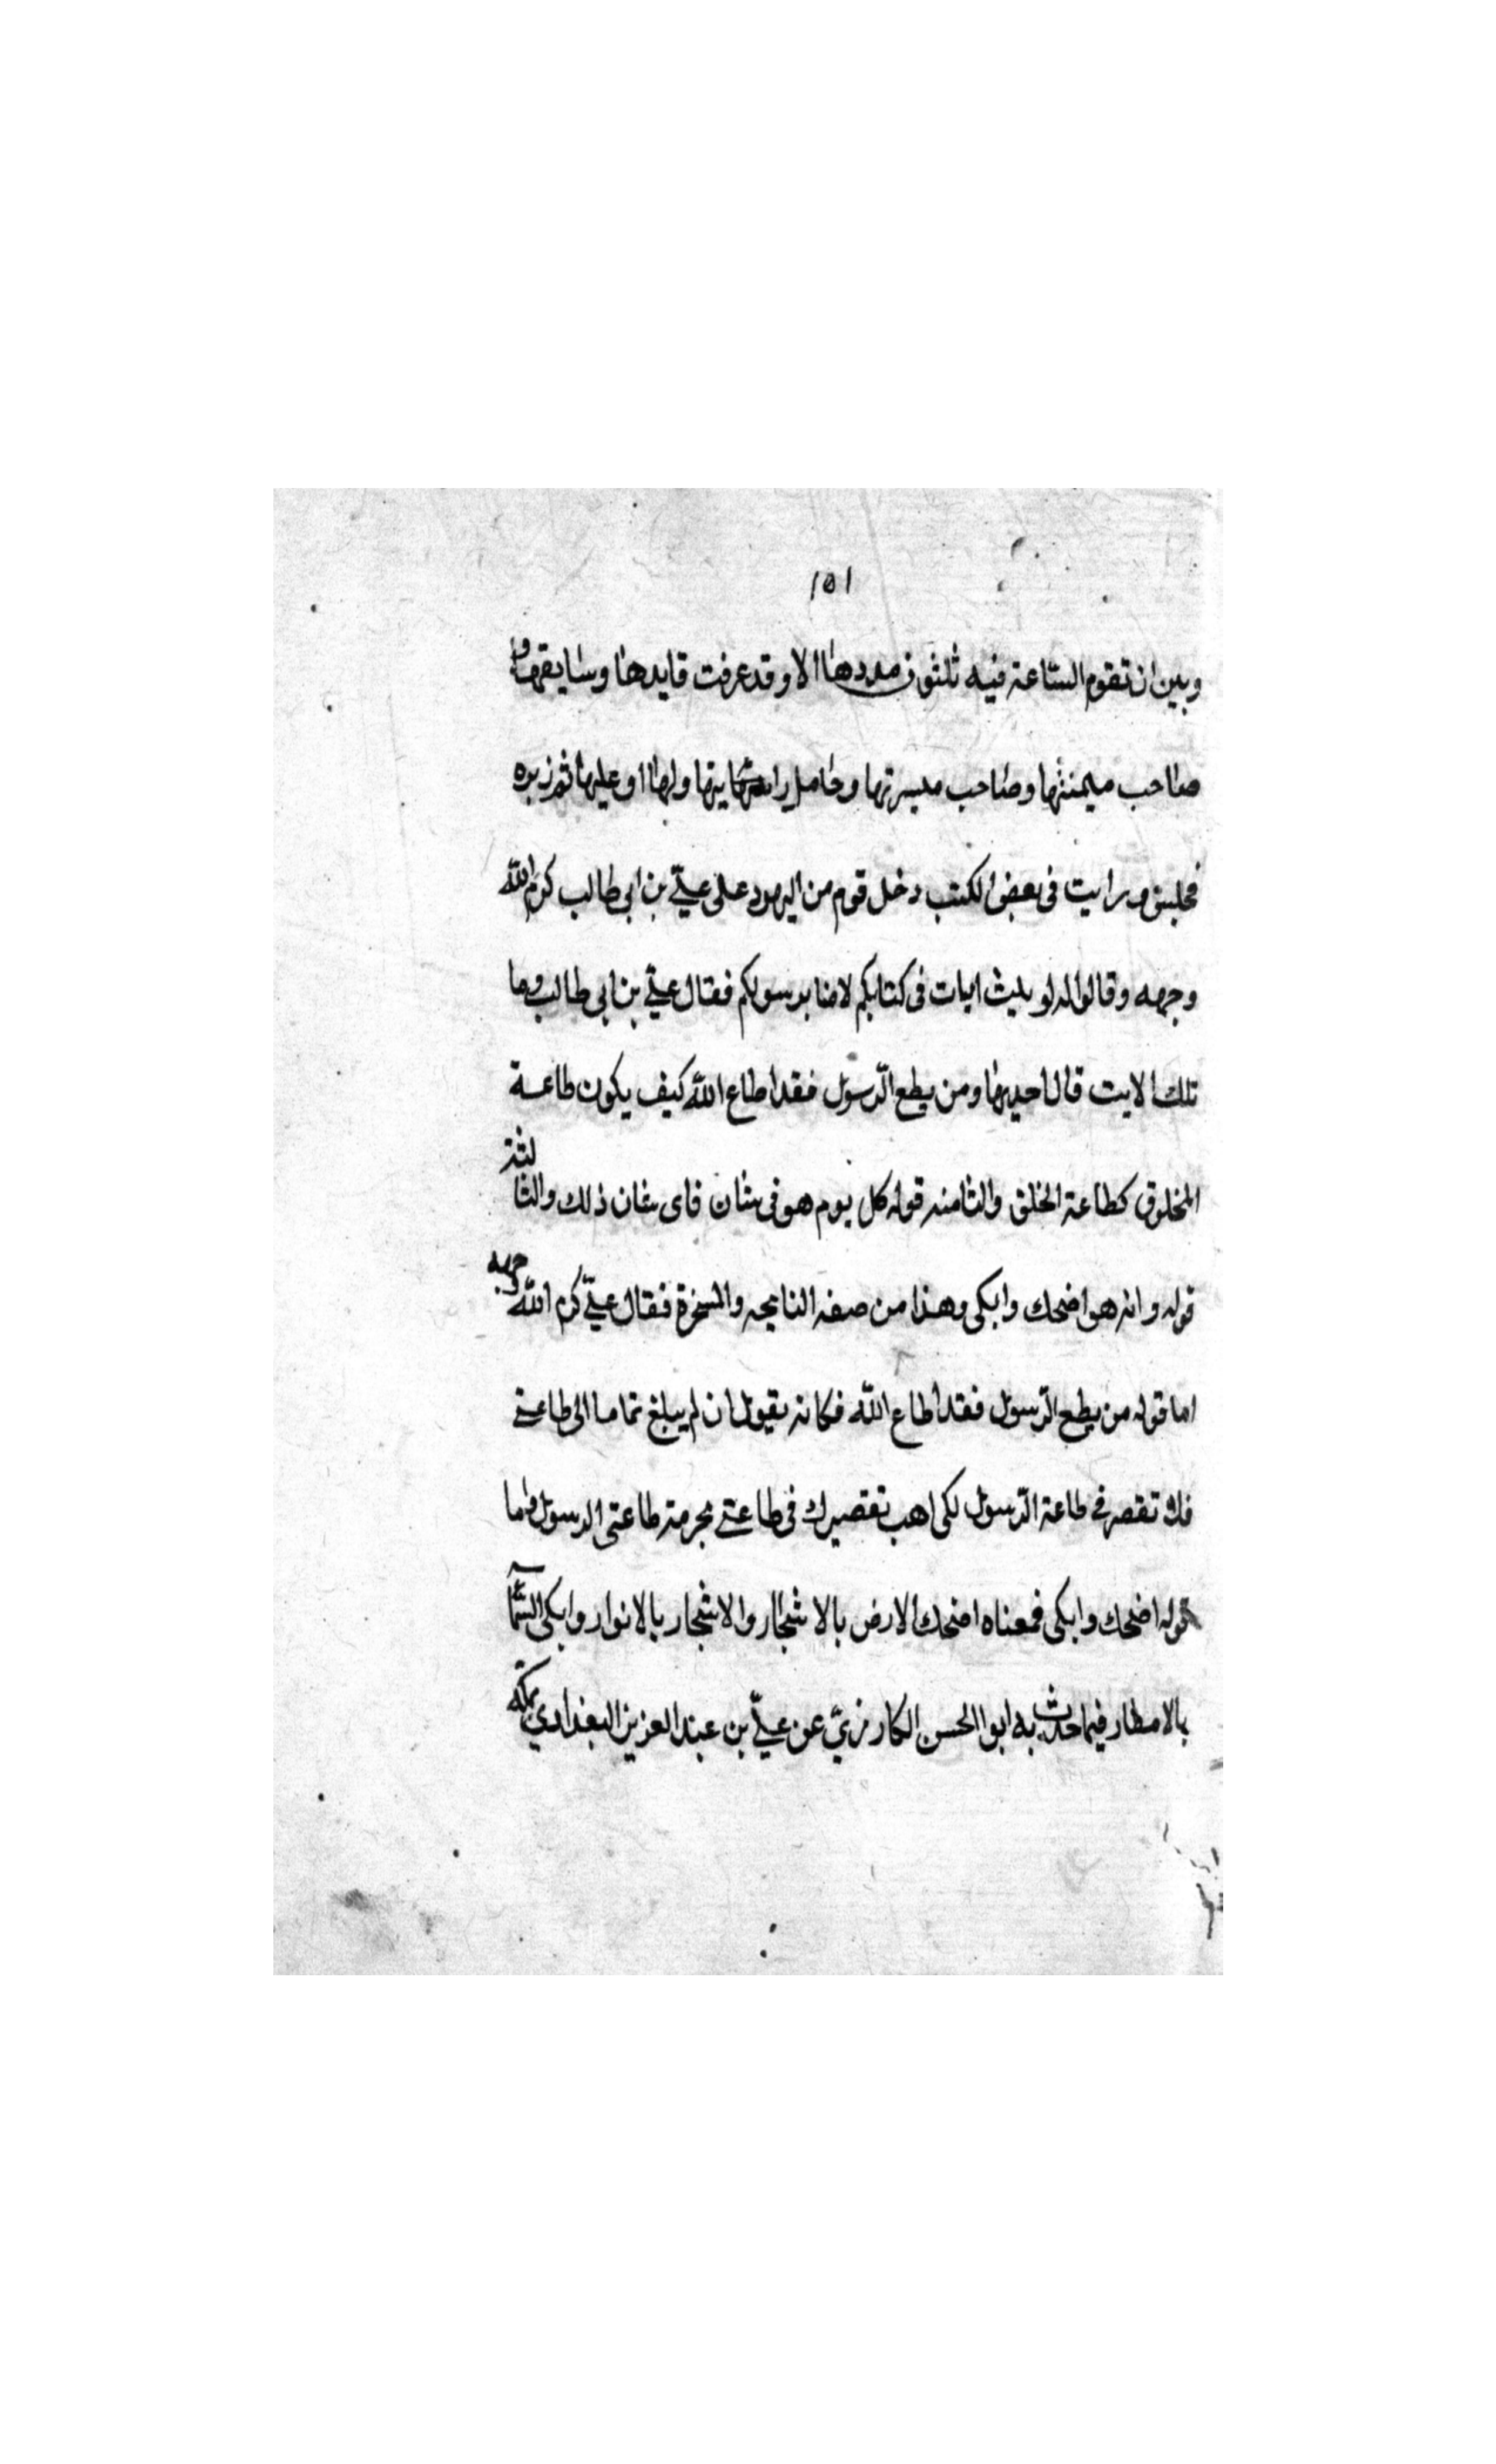 ١٥١
وبين ان تقوم الساعة فيه ثلثون مددها الا وقد عرفت قايدها وسايقها و
صاحب ميمنتها وصاحب ميسرتها وحامل رايتها ولها او عليها ثم زبره
فجلس ورايت في بعض الكتب دخل قوم من اليهود على عليّ بن ابي طالب كرم اللّه
وجهه وقالوا له لو ثلث ايات في كتابكم لامنا برسولكم فقال عليّ بن ابي طالب وما
تلك الايت قال احديها ومن يطع الرّسول فقد اطاع اللّه كيف يكون طاعة
المخلوق كطاعة الخلق والثامنه قوله كل يوم هو في شان فاى شان ذلك والثالثة
قوله وانه هو اضحك وابكى وهذا من صفه النايحه والمسخرة فقال عليّ كرم اللّه وجهه
اما قوله من يطع الرّسول فقد اطاع اللّه فكانه يقول ان لم يبلغ تماما الى طاعتي
فلا تقصر في طاعة الرّسول لكى اهب تقصيرك في طاعتي بحرمة طاعتى الرسول واما
قوله اضحك وابكى فمعناه اضحك الارض بالاشجار والاشجار بالانوار وابكى السّمآ
بالامطار فيما حدث به ابوا الحسن الكارزيّ عن عليّ بن عبد العزيز البغدادي بمكة